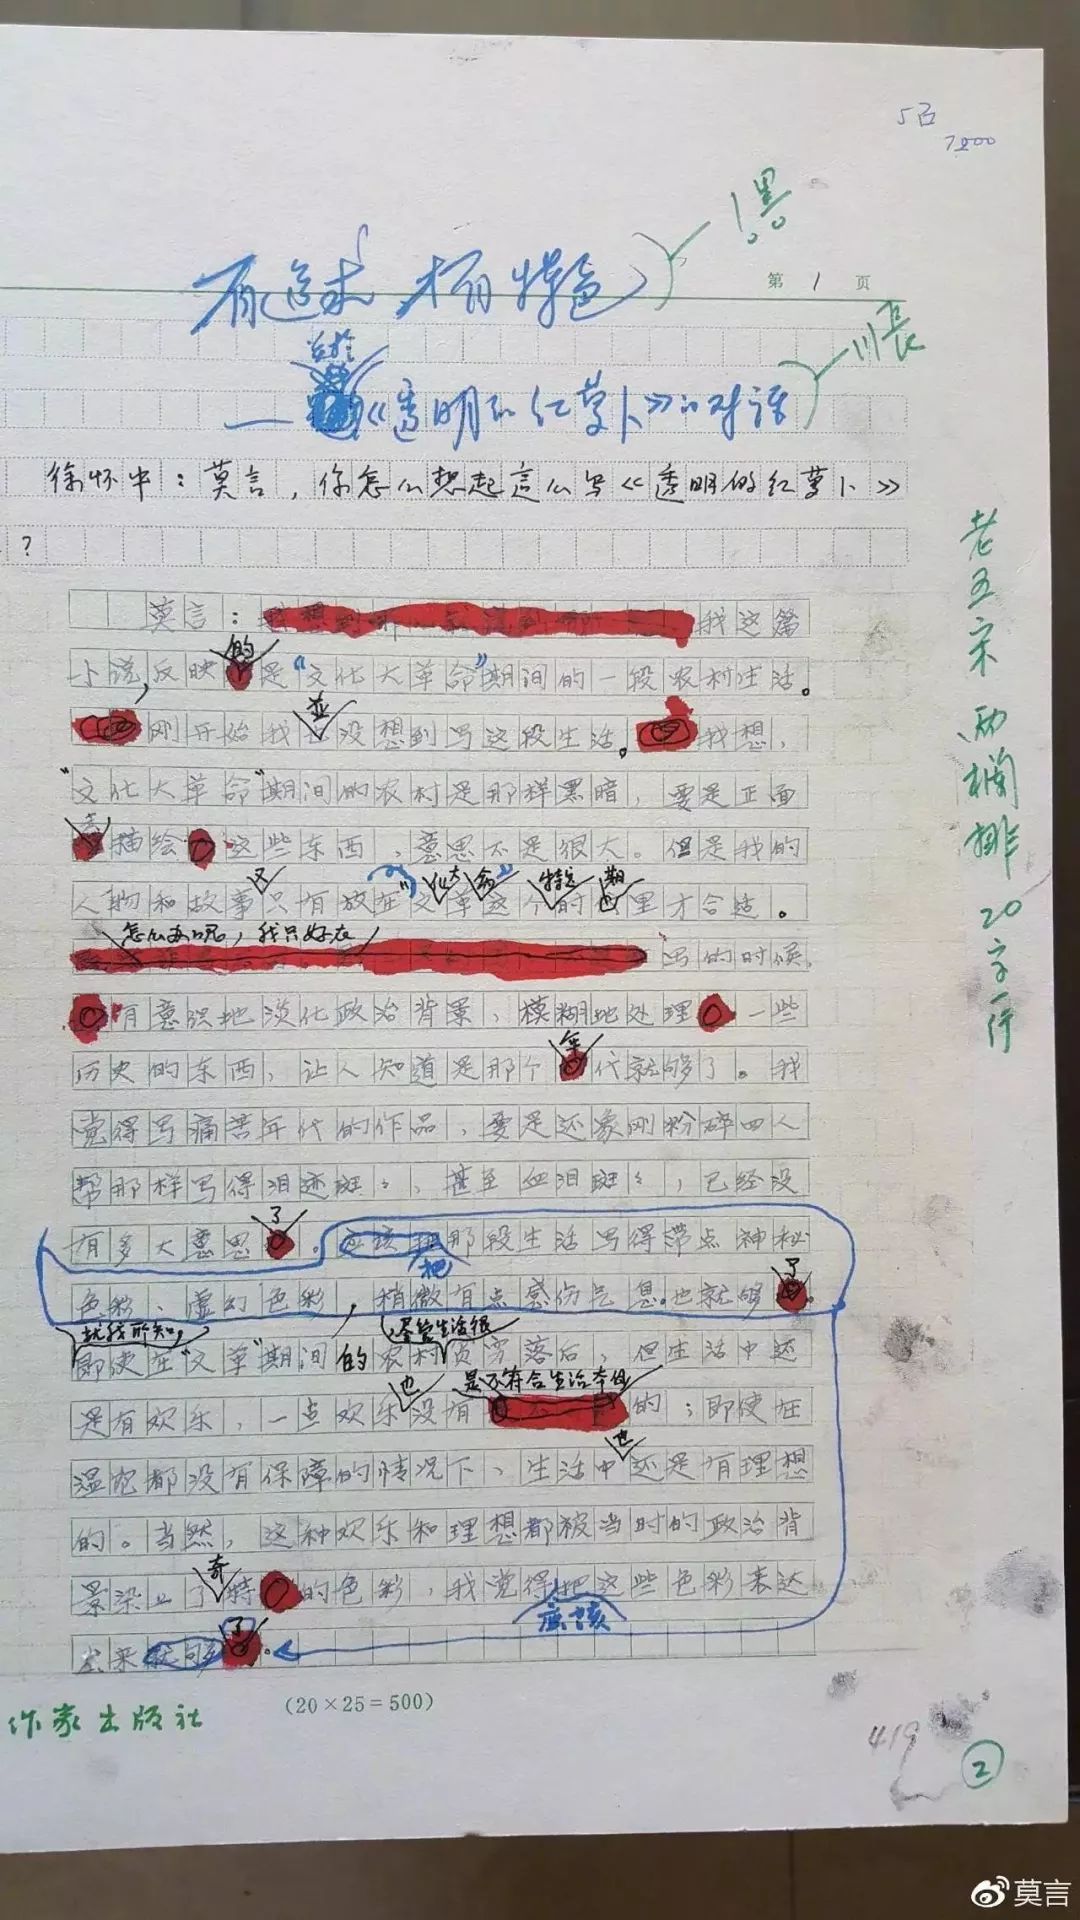 7200
1黑
有追求才有特色
第 1 页
关于
川長
——《透明的红萝卜》的对话
徐怀中：莫言，你怎么想起這么写《透明的红萝卜》
？
莫言： 我这篇
的
小说，反映 是“文化大革命”期间的一段农村生活。
並
刚开始我 没想到写这段生活。 我想，
“文化大革命”期间的农村是那样黑暗，要是正面
去
描绘 这些东西，意思不是很大。但是我的
又 化大 命” 特定 期
人物和故事只有放在“文革这个的 里才合适。
怎么办呢，我只好在
写的时候，
有意识地淡化政治背景，模糊地处理 一些
年
历史的东西，让人知道是那个 代就够了。我
觉得写痛苦年代的作品，要是还象刚粉碎四人
帮那样写得泪迹斑々，甚至血泪斑々，已经没
了
有多大意思 。应该把那段生活写得带点神秘
把
了
色彩、虚幻色彩，稍微有点感伤气息。也就够 。
就我所知， 尽管生活很
即使在“文革”期间的农村贫穷落后，但生活中还
也 是不符合生活本母
是有欢乐，一点欢乐没有 的；即使在
也
温饱都没有保障的情况下，生活中还是有理想
的。当然，这种欢乐和理想都被当时的政治背
奇
景染上了特 的色彩，我觉得把这些色彩表达
应该
了
出来就够 。
老五宋 两栏排 20字一行
作家出版社
(20×25=500)
419
2
莫言